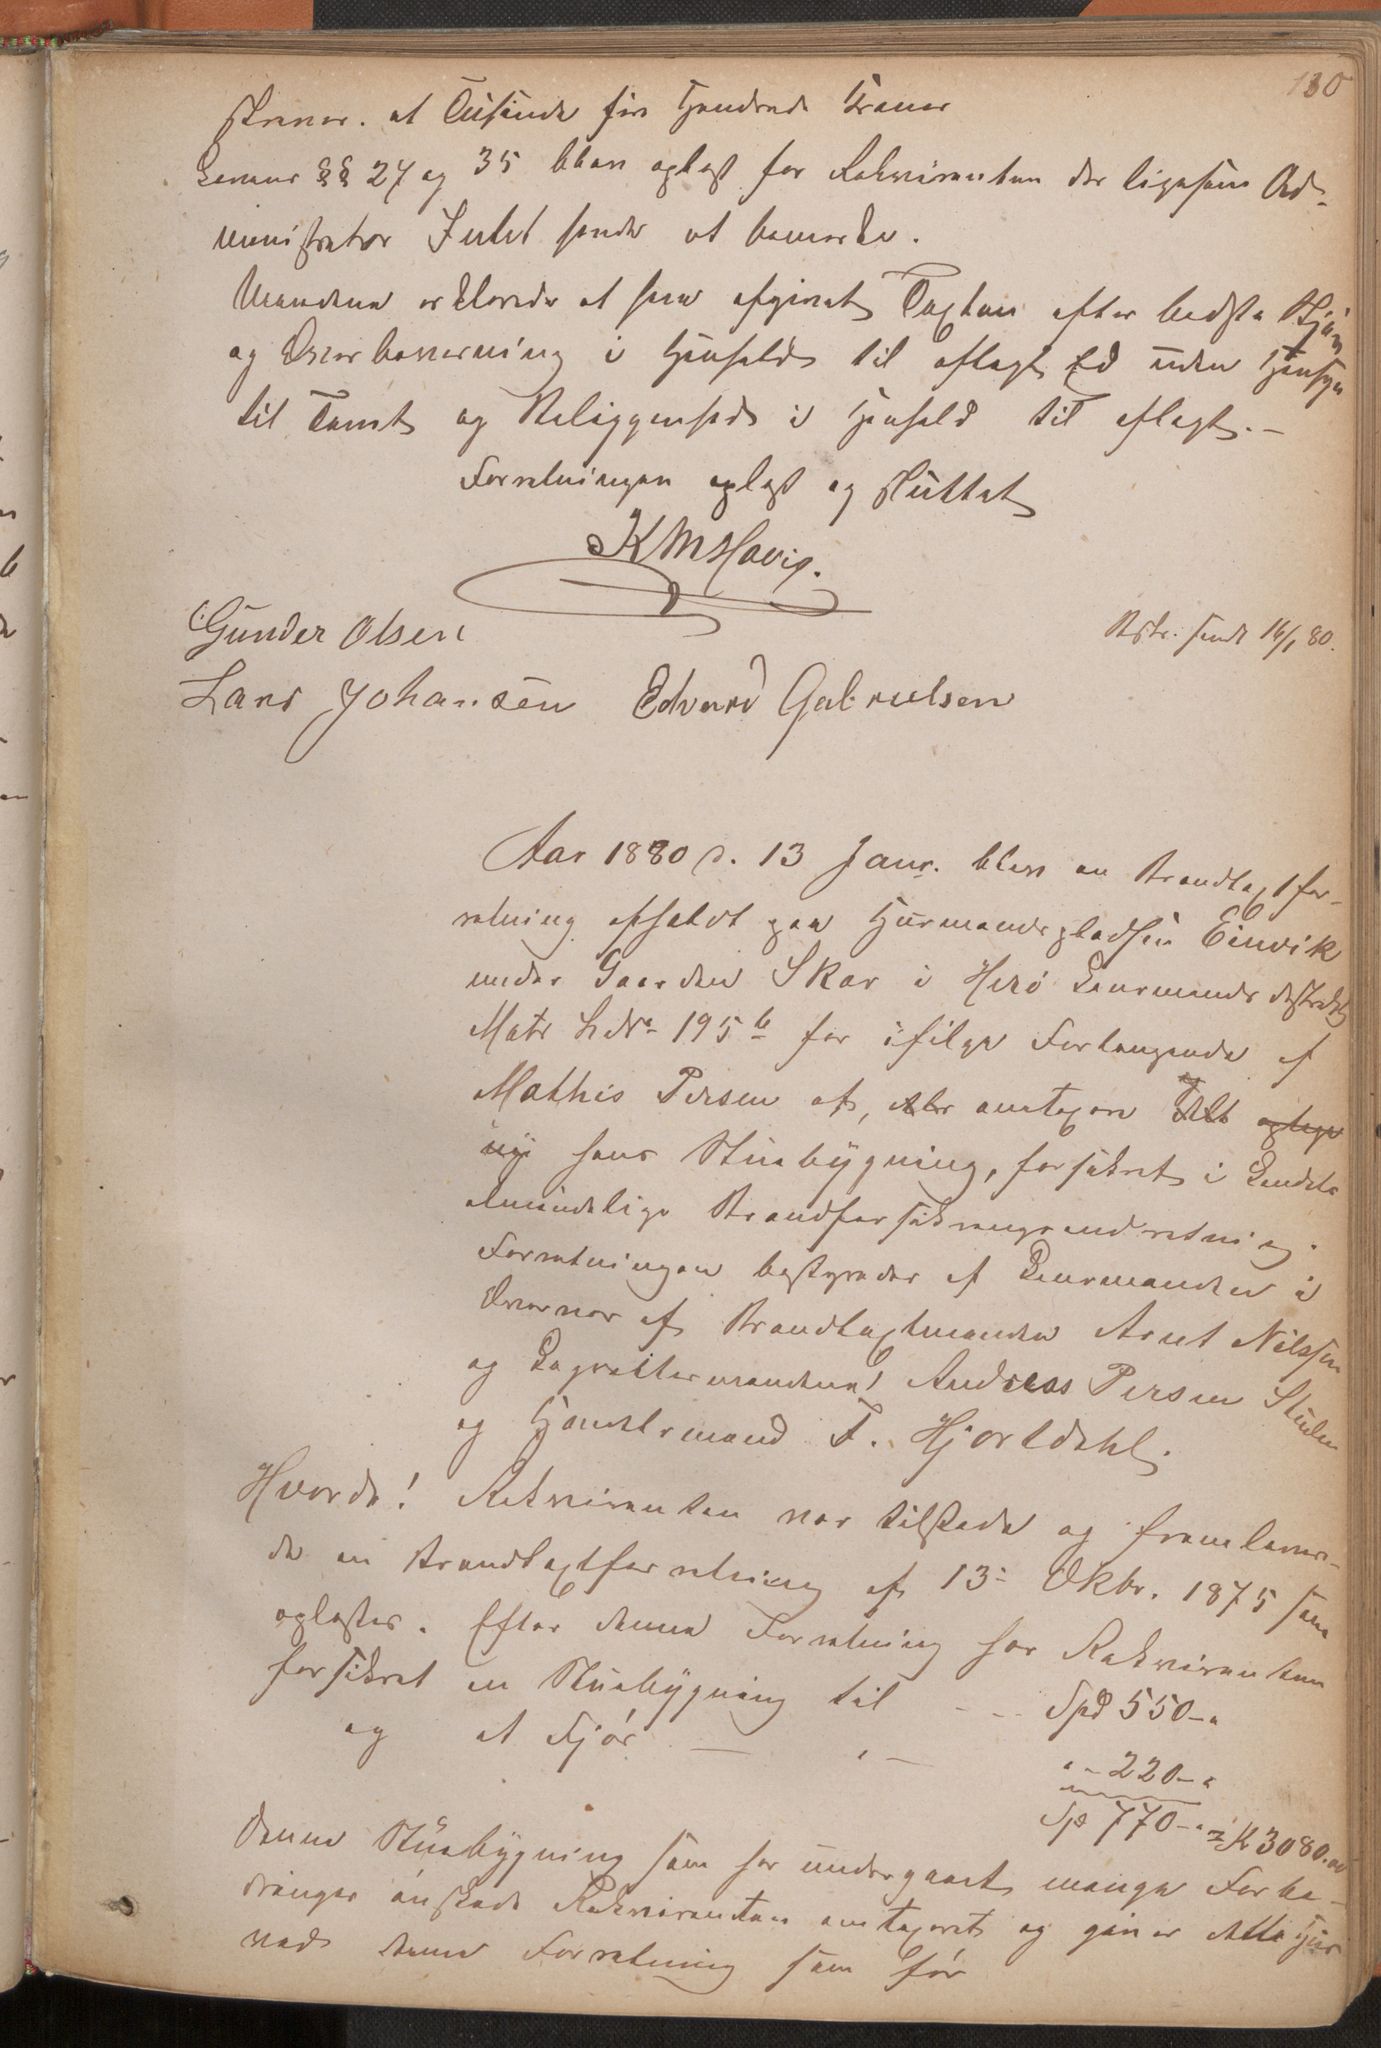 130
Kroner. et Tusinde fire Hundrede Kroner
Lovens §§ 27 og 35 blev oplæst for Rekvirenten der ligesom Ad-
ministrator Intet havde at bemærke.
Mændene erklærede at have afgivet Taxten efter bedste Skjøn
og Overbevisning i Henhold til aflagt Ed uden Hensyn
til Tomt og Beliggenhed i Henhold til aflagt.-
Forretningen oplæst og sluttet
K M Havig.
Gunder Olsen
Bftr. sendt 16/1 80.
Lars Johansen Edvard Gabrielsen
Aar 1880 d. 13 Janr. blev en Brandtaxtfor-
retning afholdt paa Husmandspladsen Einvik
under Gaarden Skar i Herø Lensmandsdistrikt
Matr L.No 195b for ifølge Forlangende af
Mathis Persen at, omtaxere
ny hans Stuebygning, forsikret i Landets
almindelige Brandforsikringsindretning.
Forretningen bestyredes af Lensmanden i
Overvær af Brandtaxtmanden Arnt Nilssen
og Lagrettesmændene! Andreas Persen
og Handelsmand T. Hjortdahl.
Hvorda! Rekvirenten var tilstede og fremlever-
de en Brandtaxtforretning af 13de Oktbr. 1875 som
oplæstes. Efter denne Forretning har Rekvirenten
forsikret en Stuebygning til - - - Spd 550-"
og et Fjøs — " —
" - 220-"
Spd 770-" = K 3080.00
Denne Stuebygning som har undergaaet mange Forbe-
dringer ønskede Rekvirenten omtaxeret og giver dette Hus
ved denne Forretning som før